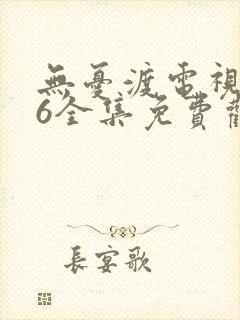 無憂渡電視
6全集免費觀
長宴歌